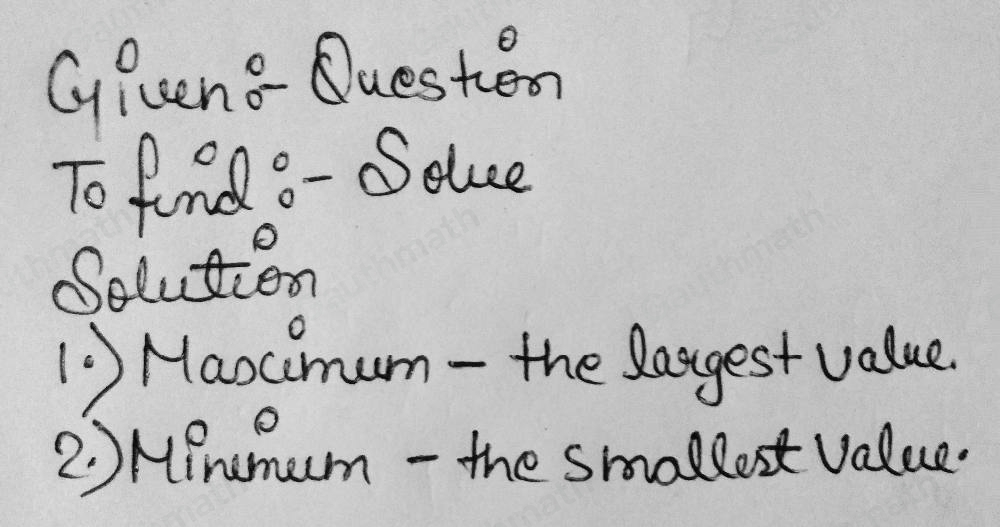 Given :- Question
To find :- Solve
Solution
1.) Maximum - the largest value.
2.) Minimum - the smallest value.